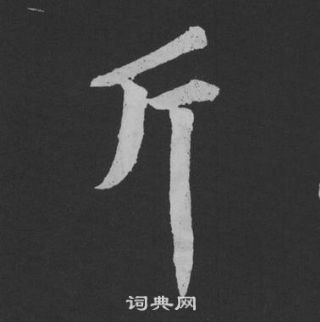 斤
词典网